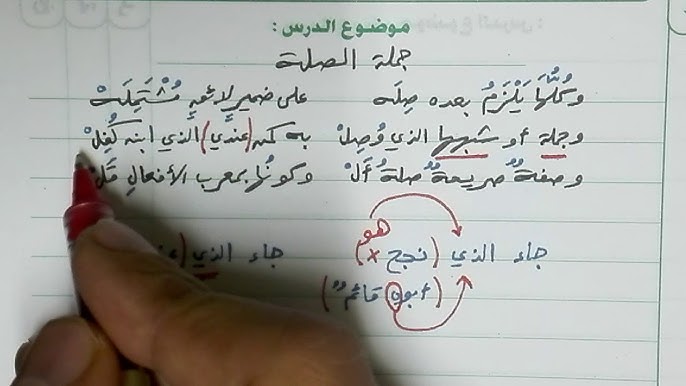 موضوع الدرس :
جملة الصلة
وكُلُّهَا يَلْزَمُ بعده صِلَه على ضميرٍ لائقٍ مُشْتَمِلَهْ
وجملة أو شبهها الذي وُصِلْ به كمن (عندي) الذي ابنه كُفِلْ
وصفةٌ صريحةٌ صلةُ ألْ وكونُها بمعرب الأفعالِ قَلْ
هو
جاء الذي (نجح x) جاء الذي (
(أبوه قائمٌ)